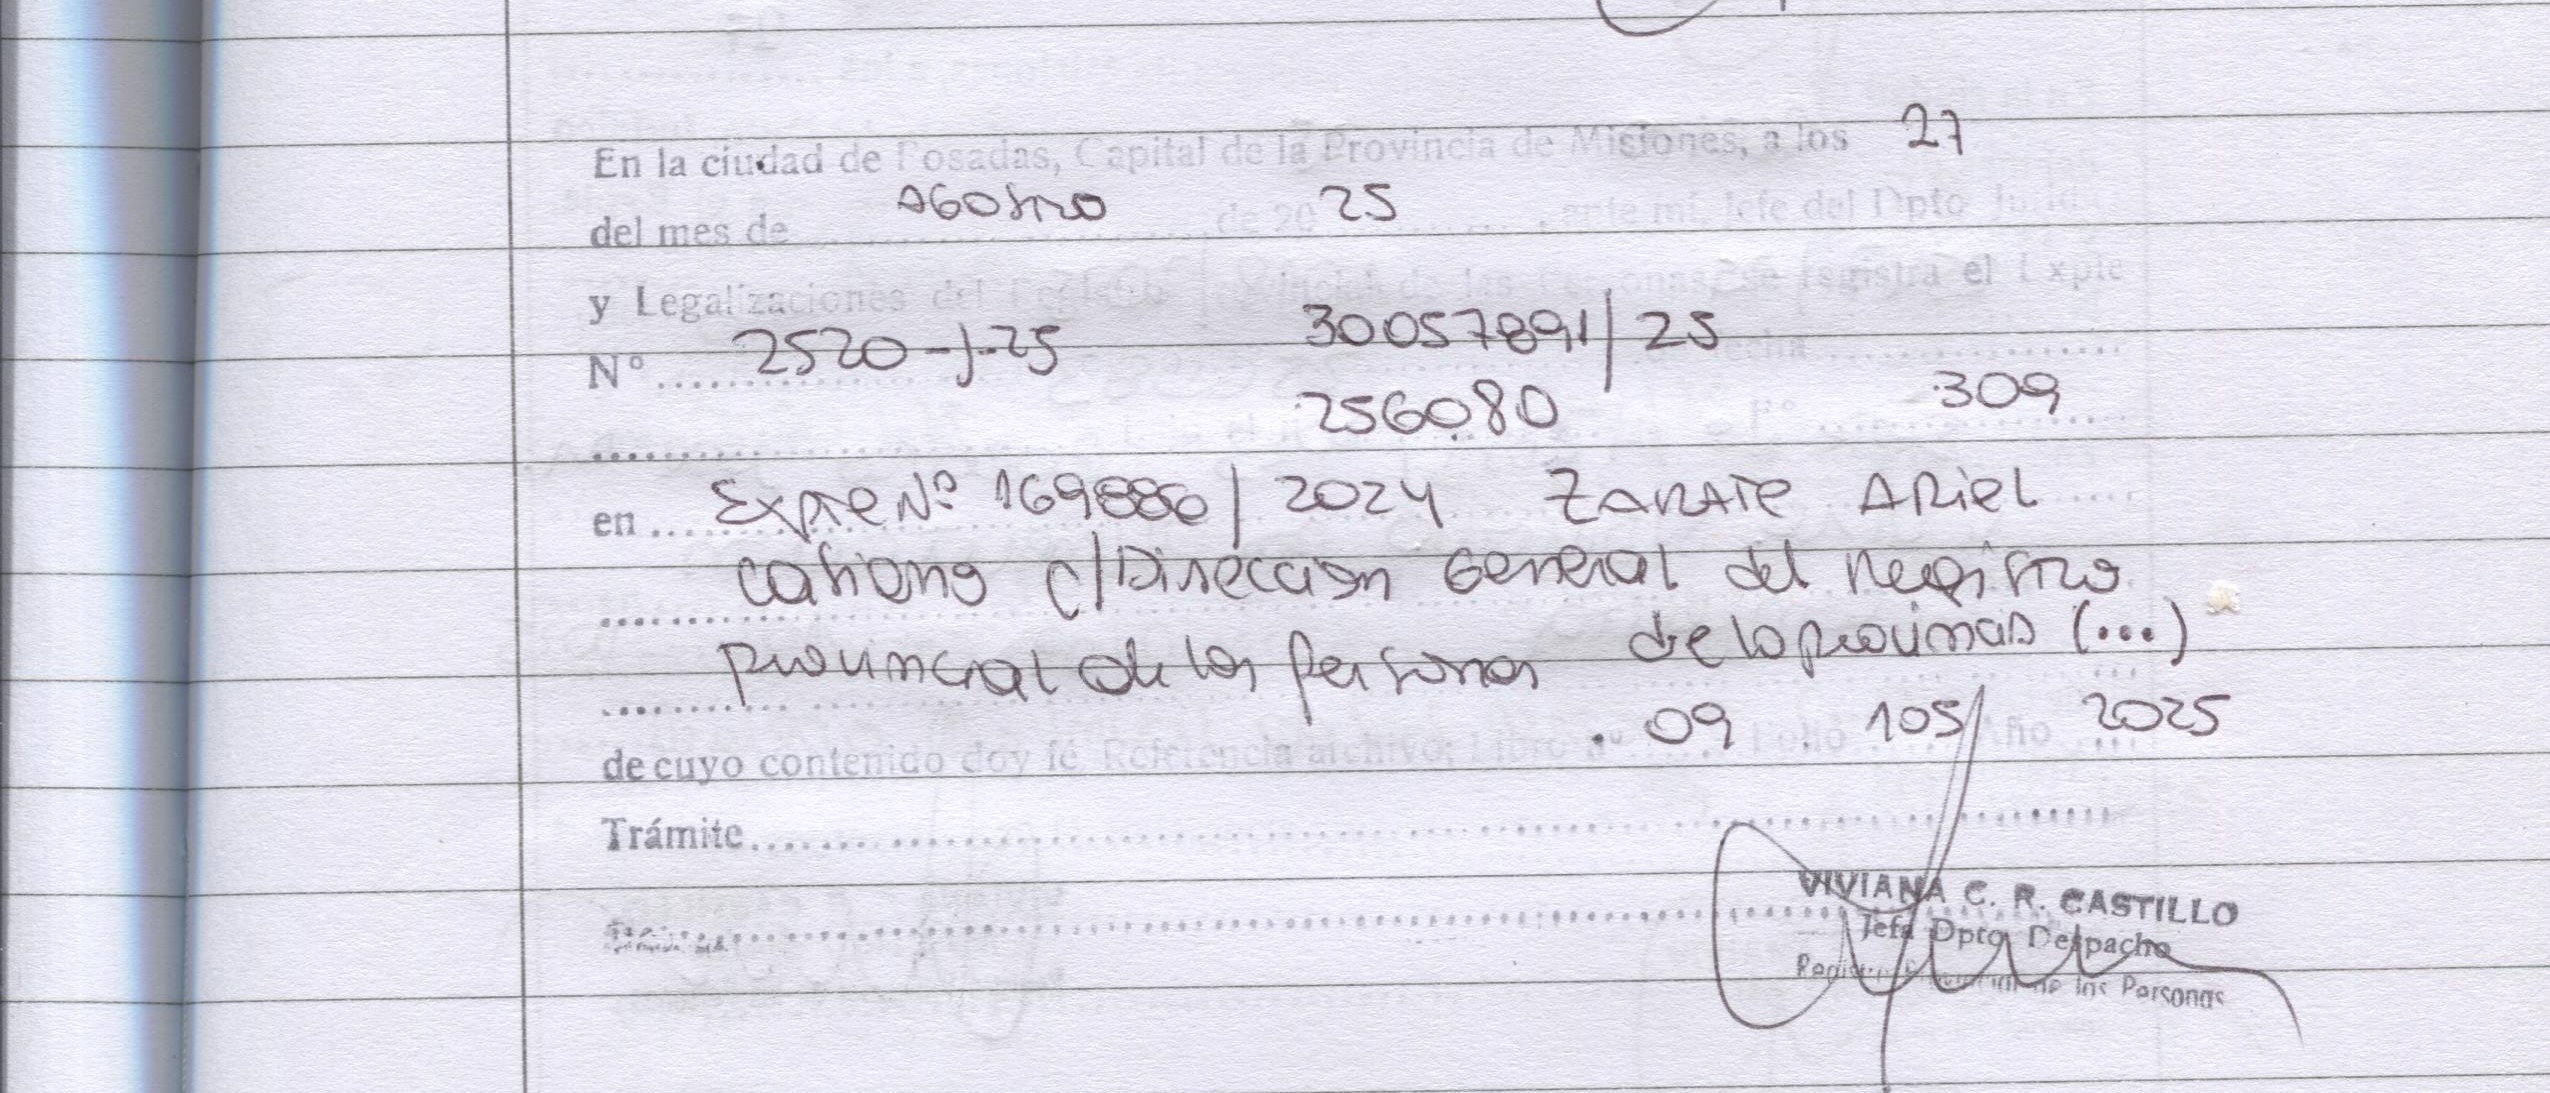 En la ciudad de Posadas, Capital de la Provincia de Misiones, a los 27
del mes de AGOSTO de 20 25, ante mí, Jefe del Dpto
y Legalizaciones del de las Personas, se registra el Expte
Nº 2520-J-25 30057891/25
256080 309
en Expte Nº 169886/2024 ZARATE ARiel
c/Dirección General del Registro
provincial de los Personas de la (...)
de cuyo contenido doy fé. Referencia archivo: Libro nº 09 Folio 105 Año 2025
Trámite
VIVIANA C. R. CASTILLO
Jefa Dpto Despacho
de las Personas